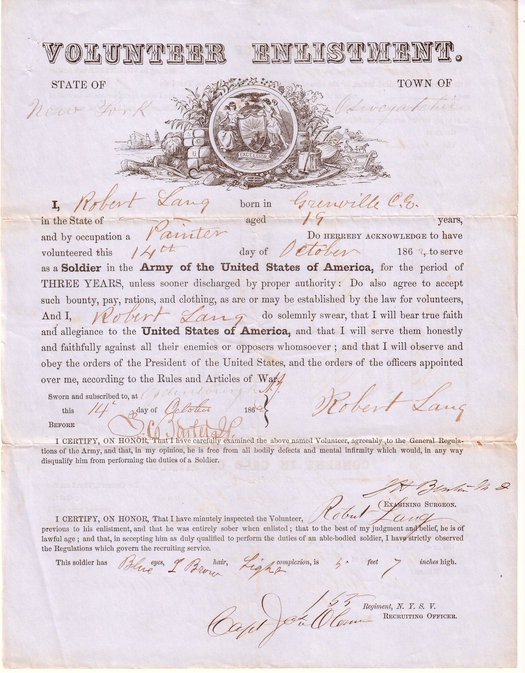 VOLUNTEER ENLISTMENT.
STATE OF TOWN OF
New York Oswegatchie
EXCELSIOR
I, Robert Lang born in Grenville C.E.
in the State of aged 19 years,
and by occupation a Painter Do HEREBY ACKNOWLEDGE to have
volunteered this 14th day of October 186 , to serve
as a Soldier in the Army of the United States of America, for the period of
THREE YEARS, unless sooner discharged by proper authority: Do also agree to accept
such bounty, pay, rations, and clothing, as are or may be established by the law for volunteers,
And I, Robert Lang do solemnly swear, that I will bear true faith
and allegiance to the United States of America, and that I will serve them honestly
and faithfully against all their enemies or opposers whomsoever; and that I will observe and
obey the orders of the President of the United States, and the orders of the officers appointed
over me, according to the Rules and Articles of War.
Sworn and subscribed to, at
this 14th day of October 186
BEFORE
Robert Lang
I CERTIFY, ON HONOR, That I have carefully examined the above named Volunteer, agreeably to the General Regula-
tions of the Army, and that, in my opinion, he is free from all bodily defects and mental infirmity which would, in any way
disqualify him from performing the duties of a Soldier.
(EXAMINING SURGEON.
I CERTIFY, ON HONOR, That I have minutely inspected the Volunteer, Robert Lang
previous to his enlistment, and that he was entirely sober when enlisted; that to the best of my judgment and belief, he is of
lawful age; and that, in accepting him as duly qualified to perform the duties of an able-bodied soldier, I have strictly observed
the Regulations which govern the recruiting service.
This soldier has Blue eyes, L Brow hair, Light complexion, is 5 feet 7 inches high.
Regiment, N. Y. S. V.
Capt RECRUITING OFFICER.